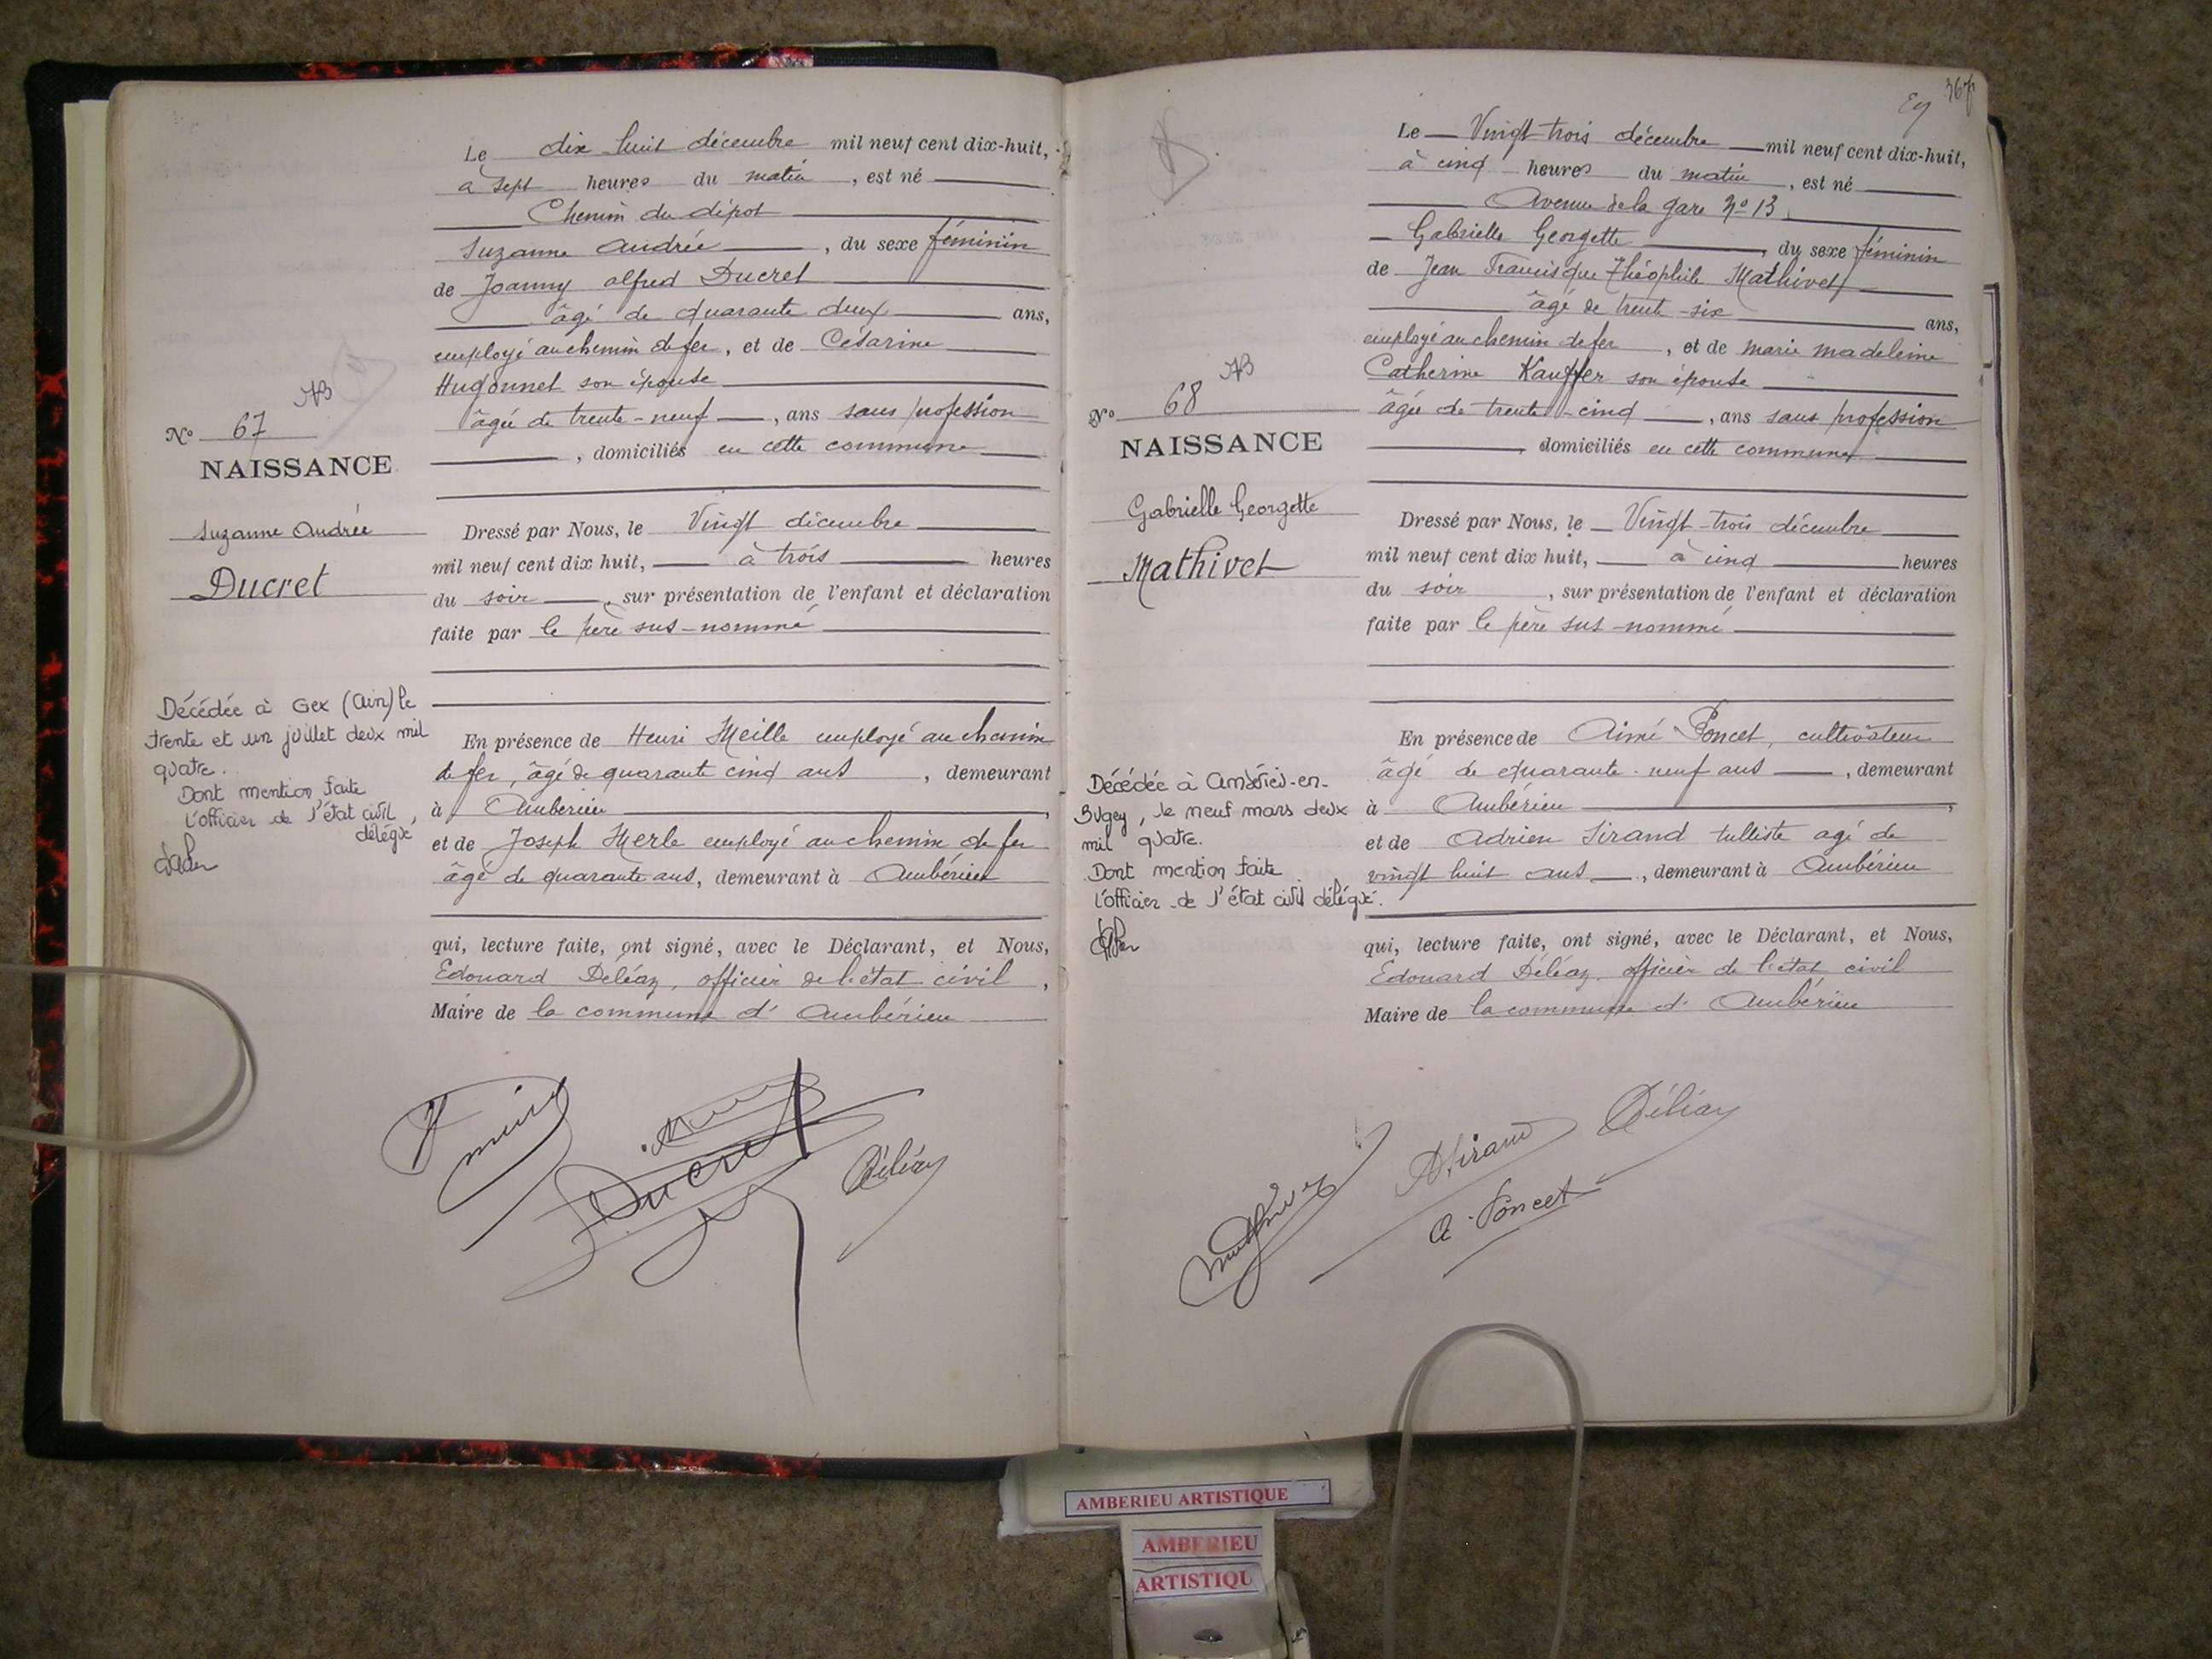 Le dix huit décembre mil neuf cent dix-huit,
à sept heures du matin, est né
Chemin du dépot
Suzanne Andrée, du sexe féminin
de Joanny Alfred Ducret
âgé de quarante deux ans,
employé au chemin de fer, et de Césarine
Hugonnet son épouse
âgée de trente-neuf, ans sans profession
, domiciliés en cette commune
Nº 67
NAISSANCE
Suzanne Andrée
Ducret
Dressé par Nous, le Vingt décembre
mil neuf cent dix huit, à trois heures
du soir, sur présentation de l'enfant et déclaration
faite par le père sus-nommé
Décédée à Gex (Ain) le
trente et un juillet deux mil
quatre.
Dont mention faite
l'officier de l'état civil,
délégué
En présence de Henri Meille employé au chemin
de fer, âgé de quarante cinq ans, demeurant
à Ambérieu,
et de Joseph Merle employé au chemin de fer
âgé de quarante ans, demeurant à Ambérieu
qui, lecture faite, ont signé, avec le Déclarant, et Nous,
Edouard Déléaz, officier de l'état civil,
Maire de la commune d'Ambérieu
Ducret
Déléaz
367
Le Vingt-trois décembre mil neuf cent dix-huit,
à cinq heures du matin, est né
Avenue de la gare nº 13
Gabrielle Georgette, du sexe féminin
de Jean Francisque Théophile Mathivet
âgé de trente-six ans,
employé au chemin de fer, et de Marie Madeleine
Catherine Kauffer son épouse
âgée de trente-cinq, ans sans profession
, domiciliés en cette commune
Nº 68
NAISSANCE
Gabrielle Georgette
Mathivet
Dressé par Nous, le Vingt-trois décembre
mil neuf cent dix huit, à cinq heures
du soir, sur présentation de l'enfant et déclaration
faite par le père sus-nommé
Décédée à Ambérieu-en-
Bugey, le neuf mars deux
mil quatre.
Dont mention faite
l'officier de l'état civil délégué.
En présence de Aimé Poncet, cultivateur
âgé de quarante-neuf ans, demeurant
à Ambérieu,
et de Adrien Sirand tulliste agé de
vingt huit ans, demeurant à Ambérieu
qui, lecture faite, ont signé, avec le Déclarant, et Nous,
Edouard Déléaz, officier de l'état civil
Maire de la commune d'Ambérieu
Mathivet
A Sirand
Déléaz
A. Poncet
AMBERIEU ARTISTIQUE
AMBERIEU
ARTISTIQU